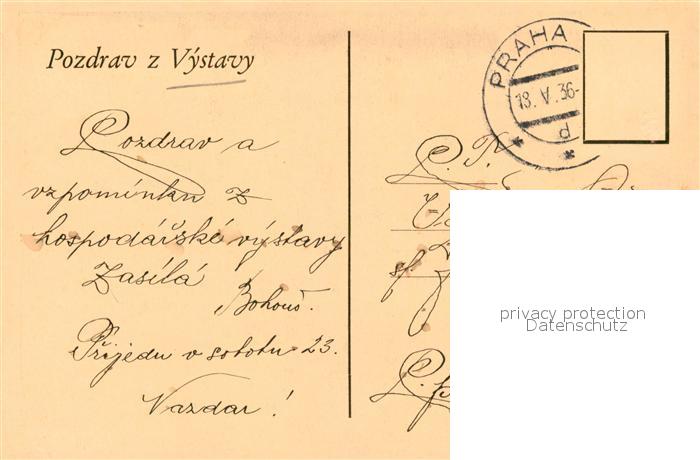 Pozdrav z Výstavy
Pozdrav a
vzpomínku z
hospodářské výstavy
Zasílá
Bohouš.
Přijedu v sobotu 23.
Nazdar!
PRAHA
18. V. 36-
d
L. P.
privacy protection
Datenschutz